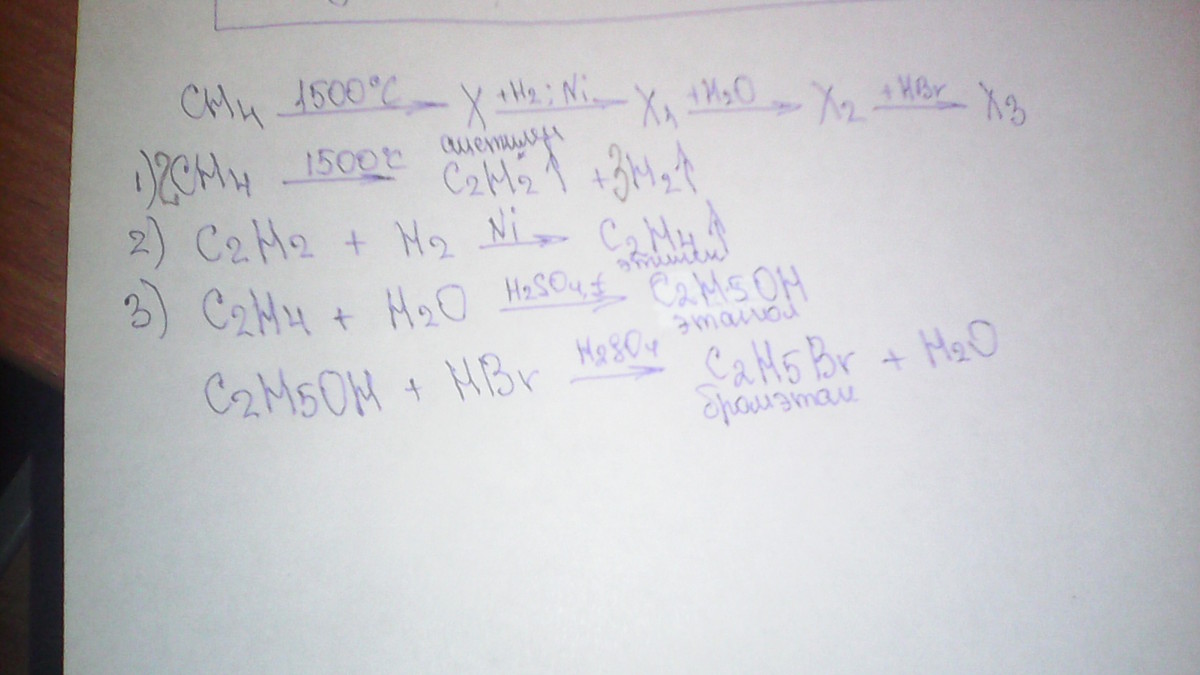 CH4 1500°C X +H2; Ni X1 +H2O X2 +HBr X3
ацетилен
1) 2CH4 1500°C C2H2↑ + 3H2↑
2) C2H2 + H2 Ni C2H4↑
этилен
3) C2H4 + H2O H2SO4, t C2H5OH
этанол
C2H5OH + HBr H2SO4 C2H5Br + H2O
бромэтан